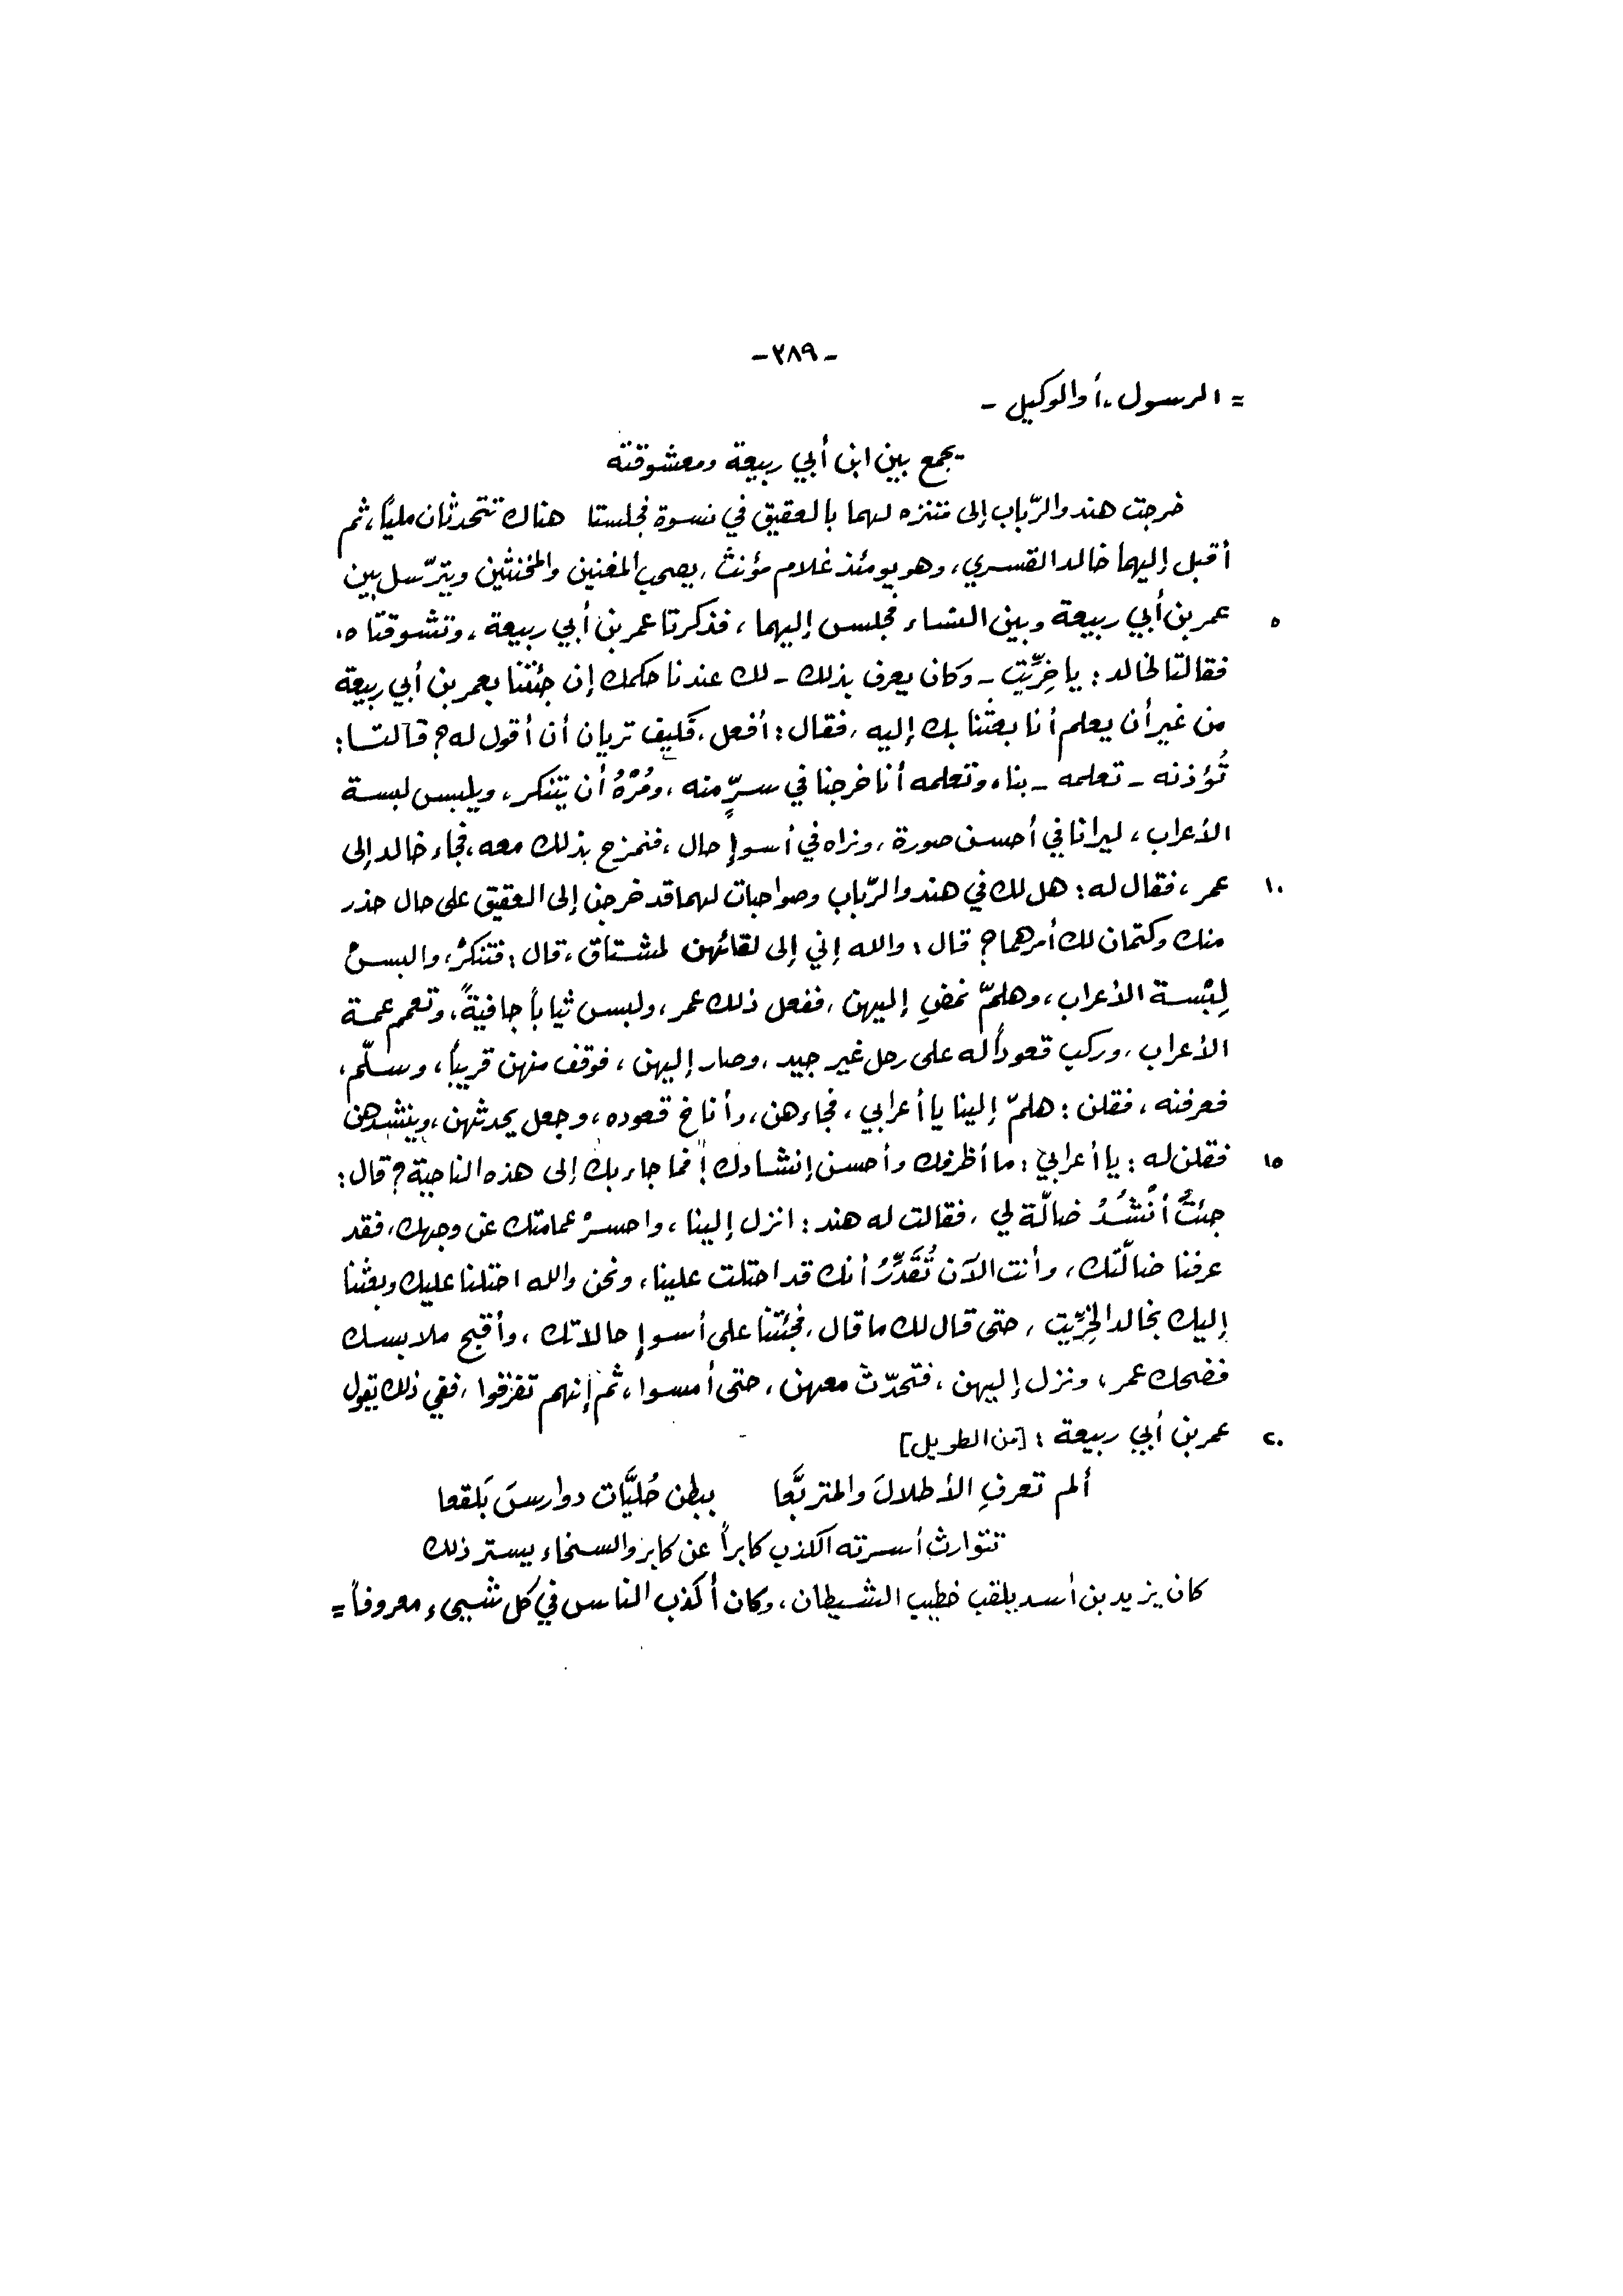 -٣٨٩-
= الرسول، أو الوكيل -
-يجمع بين ابن أبي ربيعة ومعشوقته
خرجت هند والرّباب إلى متنزه لهما بالعقيق في نسوة فجلستا هناك تتحدثان مليّاً، ثم
أقبل إليهما خالد القسري، وهو يومئذ غلام مؤنث، يصحب المغنين والمخنثين ويترّسل بين
٥ عمر بن أبي ربيعة وبين النساء فجلس إليهما، فذكرتا عمر بن أبي ربيعة، وتشوقتاه،
فقالتا لخالد: يا خِرِّيت - وكان يعرف بذلك - لك عندنا حكمك إن جئتنا بعمر بن أبي ربيعة
من غير أن يعلم أنا بعثنا بك إليه، فقال: أفعل، فكيف تريان أن أقول له؟ قالتا:
تُؤذنه - تعلمه - بنا، وتعلمه أنا خرجنا في سرٍّ منه، ومُرْهُ أن يتنكر، ويلبس لبسة
الأعراب، ليرانا في أحسن صورة، ونراه في أسوإ حال، فنمزح بذلك معه، فجاء خالد إلى
١٠ عمر، فقال له: هل لك في هند والرّباب وصواحبات لهما قد خرجن إلى العقيق على حال حذر
منك وكتمان لك أمرهما؟ قال: والله إني إلى لقائهن لمشتاق، قال: فتنكرْ، والبسْ
لِبْسة الأعراب، وهلمّ نمضِ إليهن، ففعل ذلك عمر، ولبس ثياباً جافيةً، وتعمم عمة
الأعراب، وركب قعوداً له على رحل غير جيد، وصار إليهن، فوقف منهن قريباً، وسلّم،
فعرفنه، فقلن: هلمّ إلينا يا أعرابي، فجاءهن، وأناخ قعوده، وجعل يحدثهن، وينشدهن
١٥ فقلن له: يا أعرابيّ: ما أظرفك وأحسن إنشادك! فما جاء بك إلى هذه الناحية؟ قال:
جئتُ أنْشُدُ ضالّة لي، فقالت له هند: انزل إلينا، واحسرْ عمامتك عن وجهك، فقد
عرفنا ضالّتك، وأنت الآن تُقَدِّرُ أنك قد احتلت علينا، ونحن والله احتلنا عليك وبعثنا
إليك بخالد الخِرِّيت، حتى قال لك ما قال، فجئتنا على أسوإ حالاتك، وأقبح ملابسك
فضحك عمر، ونزل إليهن، فتحدّث معهن، حتى أمسوا، ثم إنهم تفرّقوا، ففي ذلك يقول
٢٠ عمر بن أبي ربيعة: [من الطويل]
ألم تعرفِ الأطلالَ والمتربَّعا ببطن حُليَّات دوارسَ بَلقعا
تتوارث أسرته الكذب كابراً عن كابر والسخاء يستر ذلك
كان يزيد بن أسد يلقب خطيب الشيطان، وكان أكذب الناس في كل شيىء معروفاً =